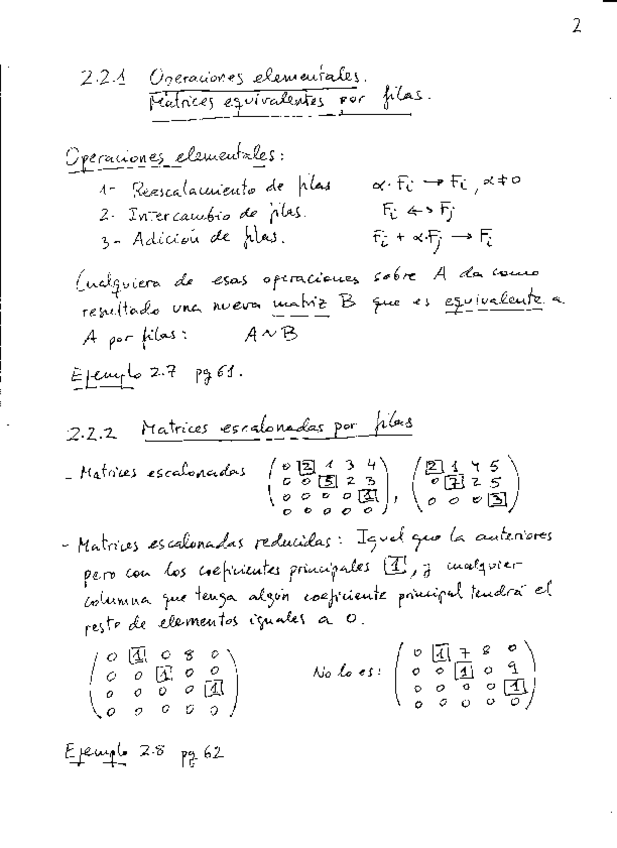 2
2.2.1 Operaciones elementales.
Matrices equivalentes por filas.
Operaciones elementales:
1- Reescalamiento de filas α·Fi → Fi, α≠0
2. Intercambio de filas. Fi ↔ Fj
3- Adición de filas. Fi + α·Fj → Fi
Cualquiera de esas operaciones sobre A da como
resultado una nueva matriz B que es equivalente a
A por filas: A ~ B
Ejemplo 2.7 pg 61.
2.2.2 Matrices escalonadas por filas
- Matrices escalonadas
0 2 1 3 4
0 0 5 2 3
0 0 0 0 1
0 0 0 0 0
,
2 1 4 5
0 7 2 5
0 0 0 3
- Matrices escalonadas reducidas: Igual que la anteriores
pero con los coeficientes principales 1, y cualquier
columna que tenga algún coeficiente principal tendrá el
resto de elementos iguales a 0.
0 1 0 8 0
0 0 1 0 0
0 0 0 0 1
0 0 0 0 0
No lo es:
0 1 7 8 0
0 0 1 0 9
0 0 0 0 1
0 0 0 0 0
Ejemplo 2.8 pg 62